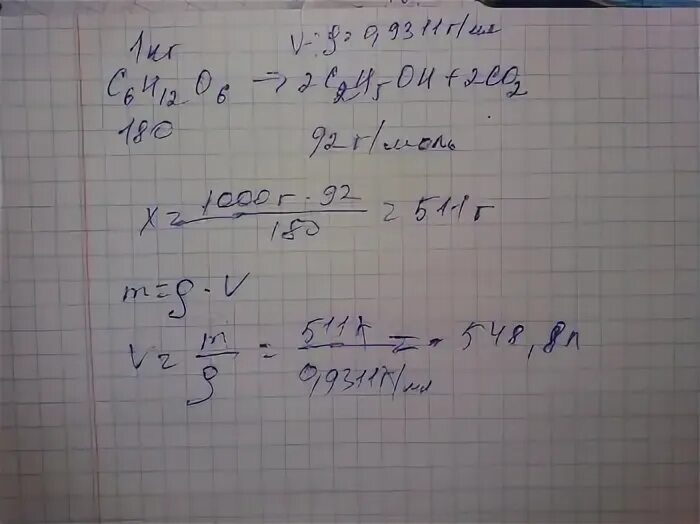 1 кг V-? ρ=0,9311 г/мл
C₆H₁₂O₆ ⇒ 2C₂H₅OH + 2CO₂
180 92 г/моль
X = 1000 г · 92 / 180 = 511 г
m = ρ · V
V = m / ρ = 511 г / 0,9311 г/мл = 548,8 л